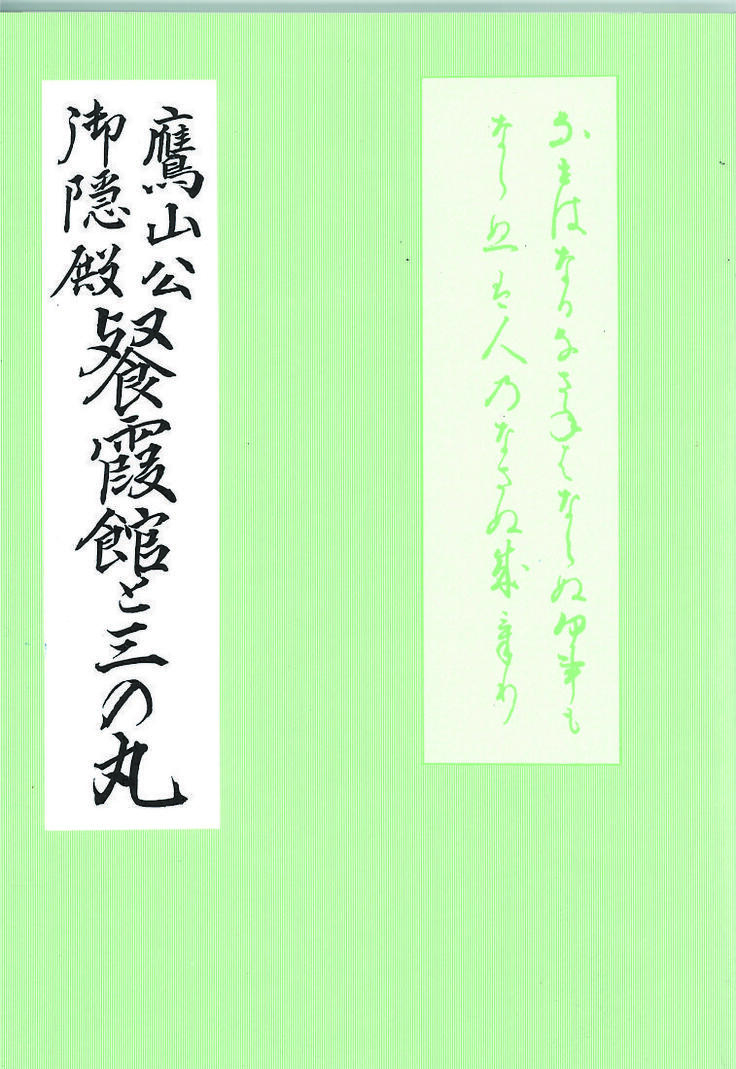 なせはなるなさねはならぬ何事も
ならぬは人のなさぬ成けり
鷹山公
御隠殿
餐霞館と三の丸